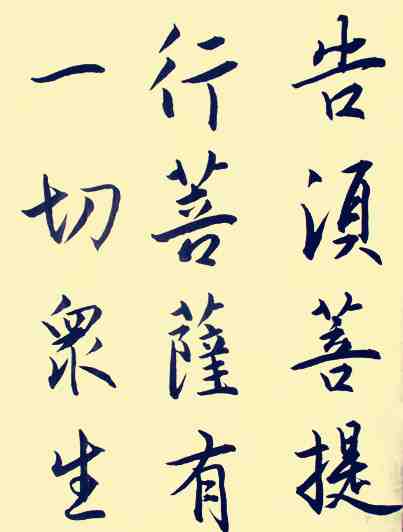 告須菩提
行菩薩有
一切眾生